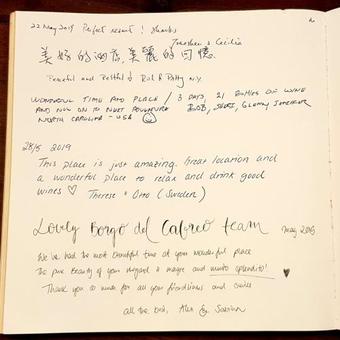 22 May 2019 Perfect resort! Thanks
Jonathan & Cecilia
美好的酒店,美麗的回憶
Peaceful and Restful Rick & Patty N.Y.
WONDERFUL TIME AND PLACE / 3 DAYS, 21 BOTTLES OF WINE
AND NOW ON TO NEXT ADVENTURE BOB, SHERI,
NORTH CAROLINA - USA
28/5 2019
This place is just amazing. Great location and
a wonderful place to relax and drink good
wines ♡ Therese & Otto (Sweden)
Lovely Borgo del Cabreo team May 2019
We've had the most beautiful time at your wonderful place
The pure beauty of your vineyard is magic and molto splendito!
Thank you so much for all your friendliness and smile
all the best, Alex & Sabrina